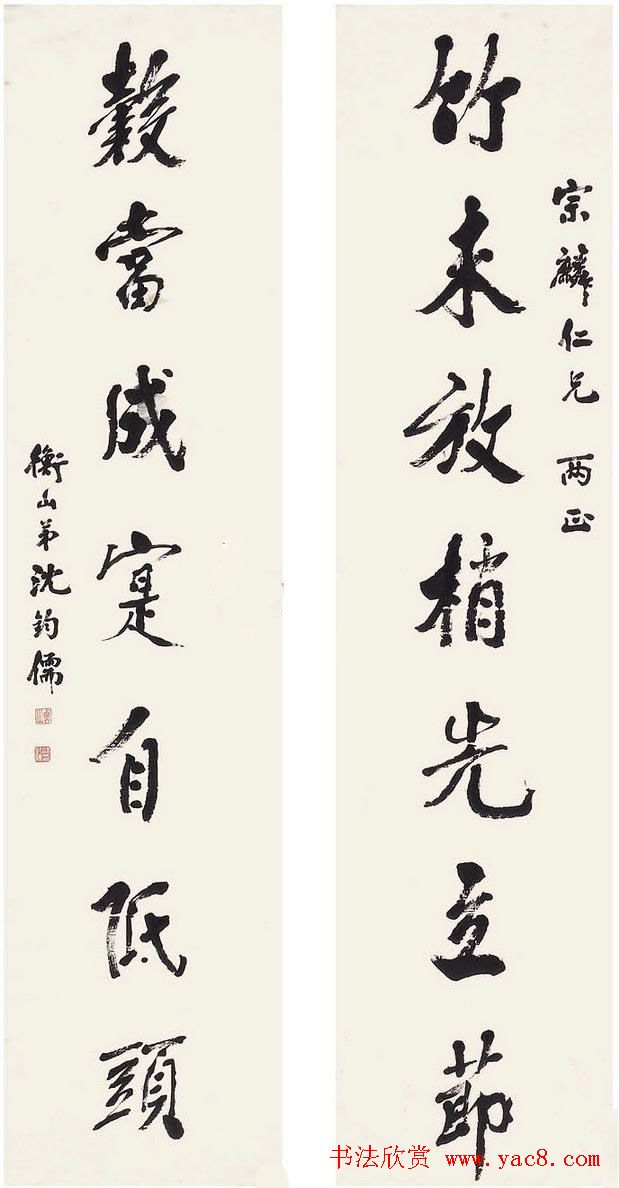 宗麟仁兄 两正
竹未放梢先立節
穀當成寔自低頭
衡山弟沈鈞儒
书法欣赏 www.yac8.com